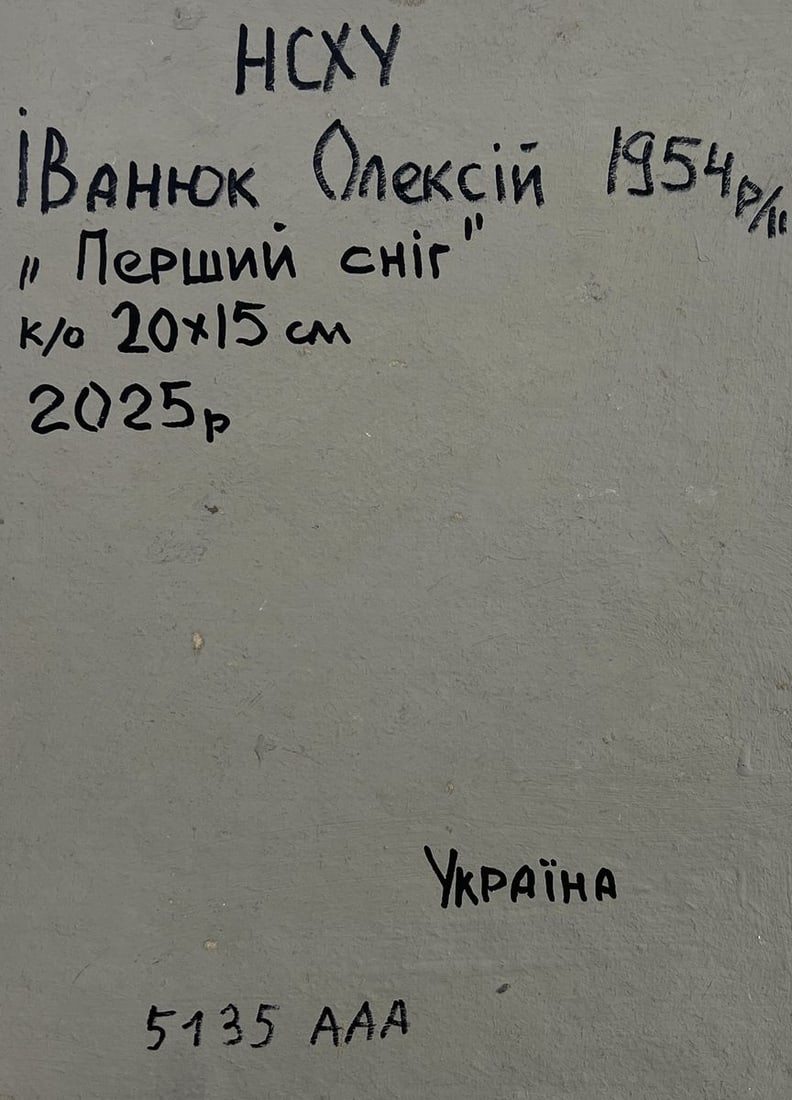 НСХУ
Іванюк Олексій 1954р/н
"Перший сніг"
к/о 20х15 см
2025р
Україна
5135 ААА